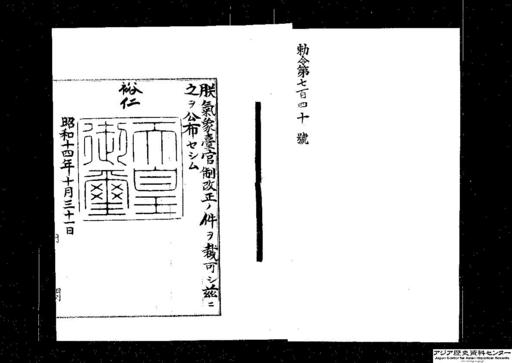 勅令第七百四十號
朕氣象臺官制改正ノ件ヲ裁可シ茲ニ
之ヲ公布セシム
裕仁
天皇御璽
昭和十四年十月三十一日
アジア歴史資料センター
Japan Center for Asian Historical Records